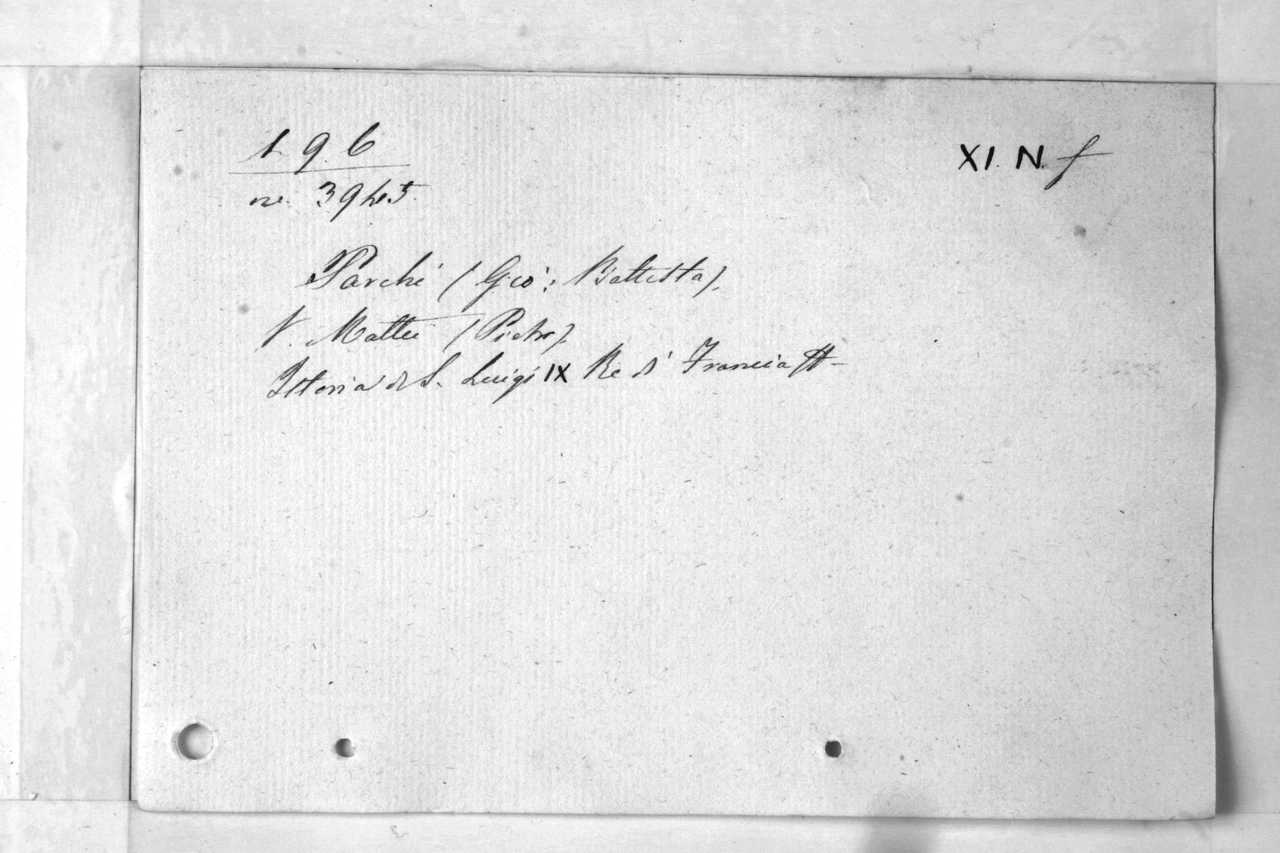 1. 9. 6
XI. N. f
Parchi (Gio: Battista).
V. Mattei (Pietro)
Istoria di S. Luigi IX Re d' Francia